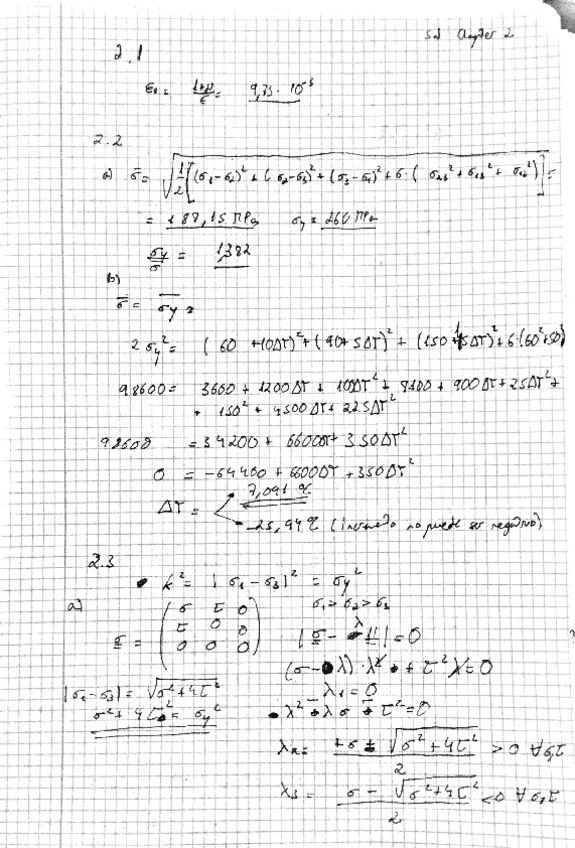 Sol Chapter 2
2.1
ε₁ = (1+ν)/E = 9,35 · 10⁻³
2.2
a) σ̄ = √(1/2 [(σ₁-σ₂)² + (σ₂-σ₃)² + (σ₃-σ₁)² + 6·(σ₂₃² + σ₁₃² + σ₁₂²)]) =
= 188,15 MPa σy = 260 MPa
σy/σ̄ = 1,382
b)
σ̄ = σy =
2σy² = (60 + 10ΔT)² + (90 + 5ΔT)² + (150 + 15ΔT)² + 6·(60² + 50)
98600 = 3600 + 1200ΔT + 10ΔT² + 8100 + 900ΔT + 25ΔT² +
+ 150² + 4500ΔT + 225ΔT²
98600 = 34200 + 6600ΔT + 350ΔT²
0 = -64400 + 6600ΔT + 350ΔT²
7,091 ℃
ΔT =
-25,94 ℃ (Incremento no puede ser negativo)
2.3
k² = |σ₁ - σ₃|² = σy²
σ₁ > σ₂ > σ₃
a)
σ = (σ τ 0
τ 0 0
0 0 0)
|σ - λ | = 0
(σ - λ)·λ² + τ²λ = 0
λ₁ = 0
|σ₁-σ₃| = √(σ² + 4τ²)
σ² + 4τ² = σy²
λ² - λσ - τ² = 0
λ₂ = (+σ + √(σ² + 4τ²))/2 > 0 ∀σ,τ
λ₃ = (σ - √(σ² + 4τ²))/2 < 0 ∀σ,τ